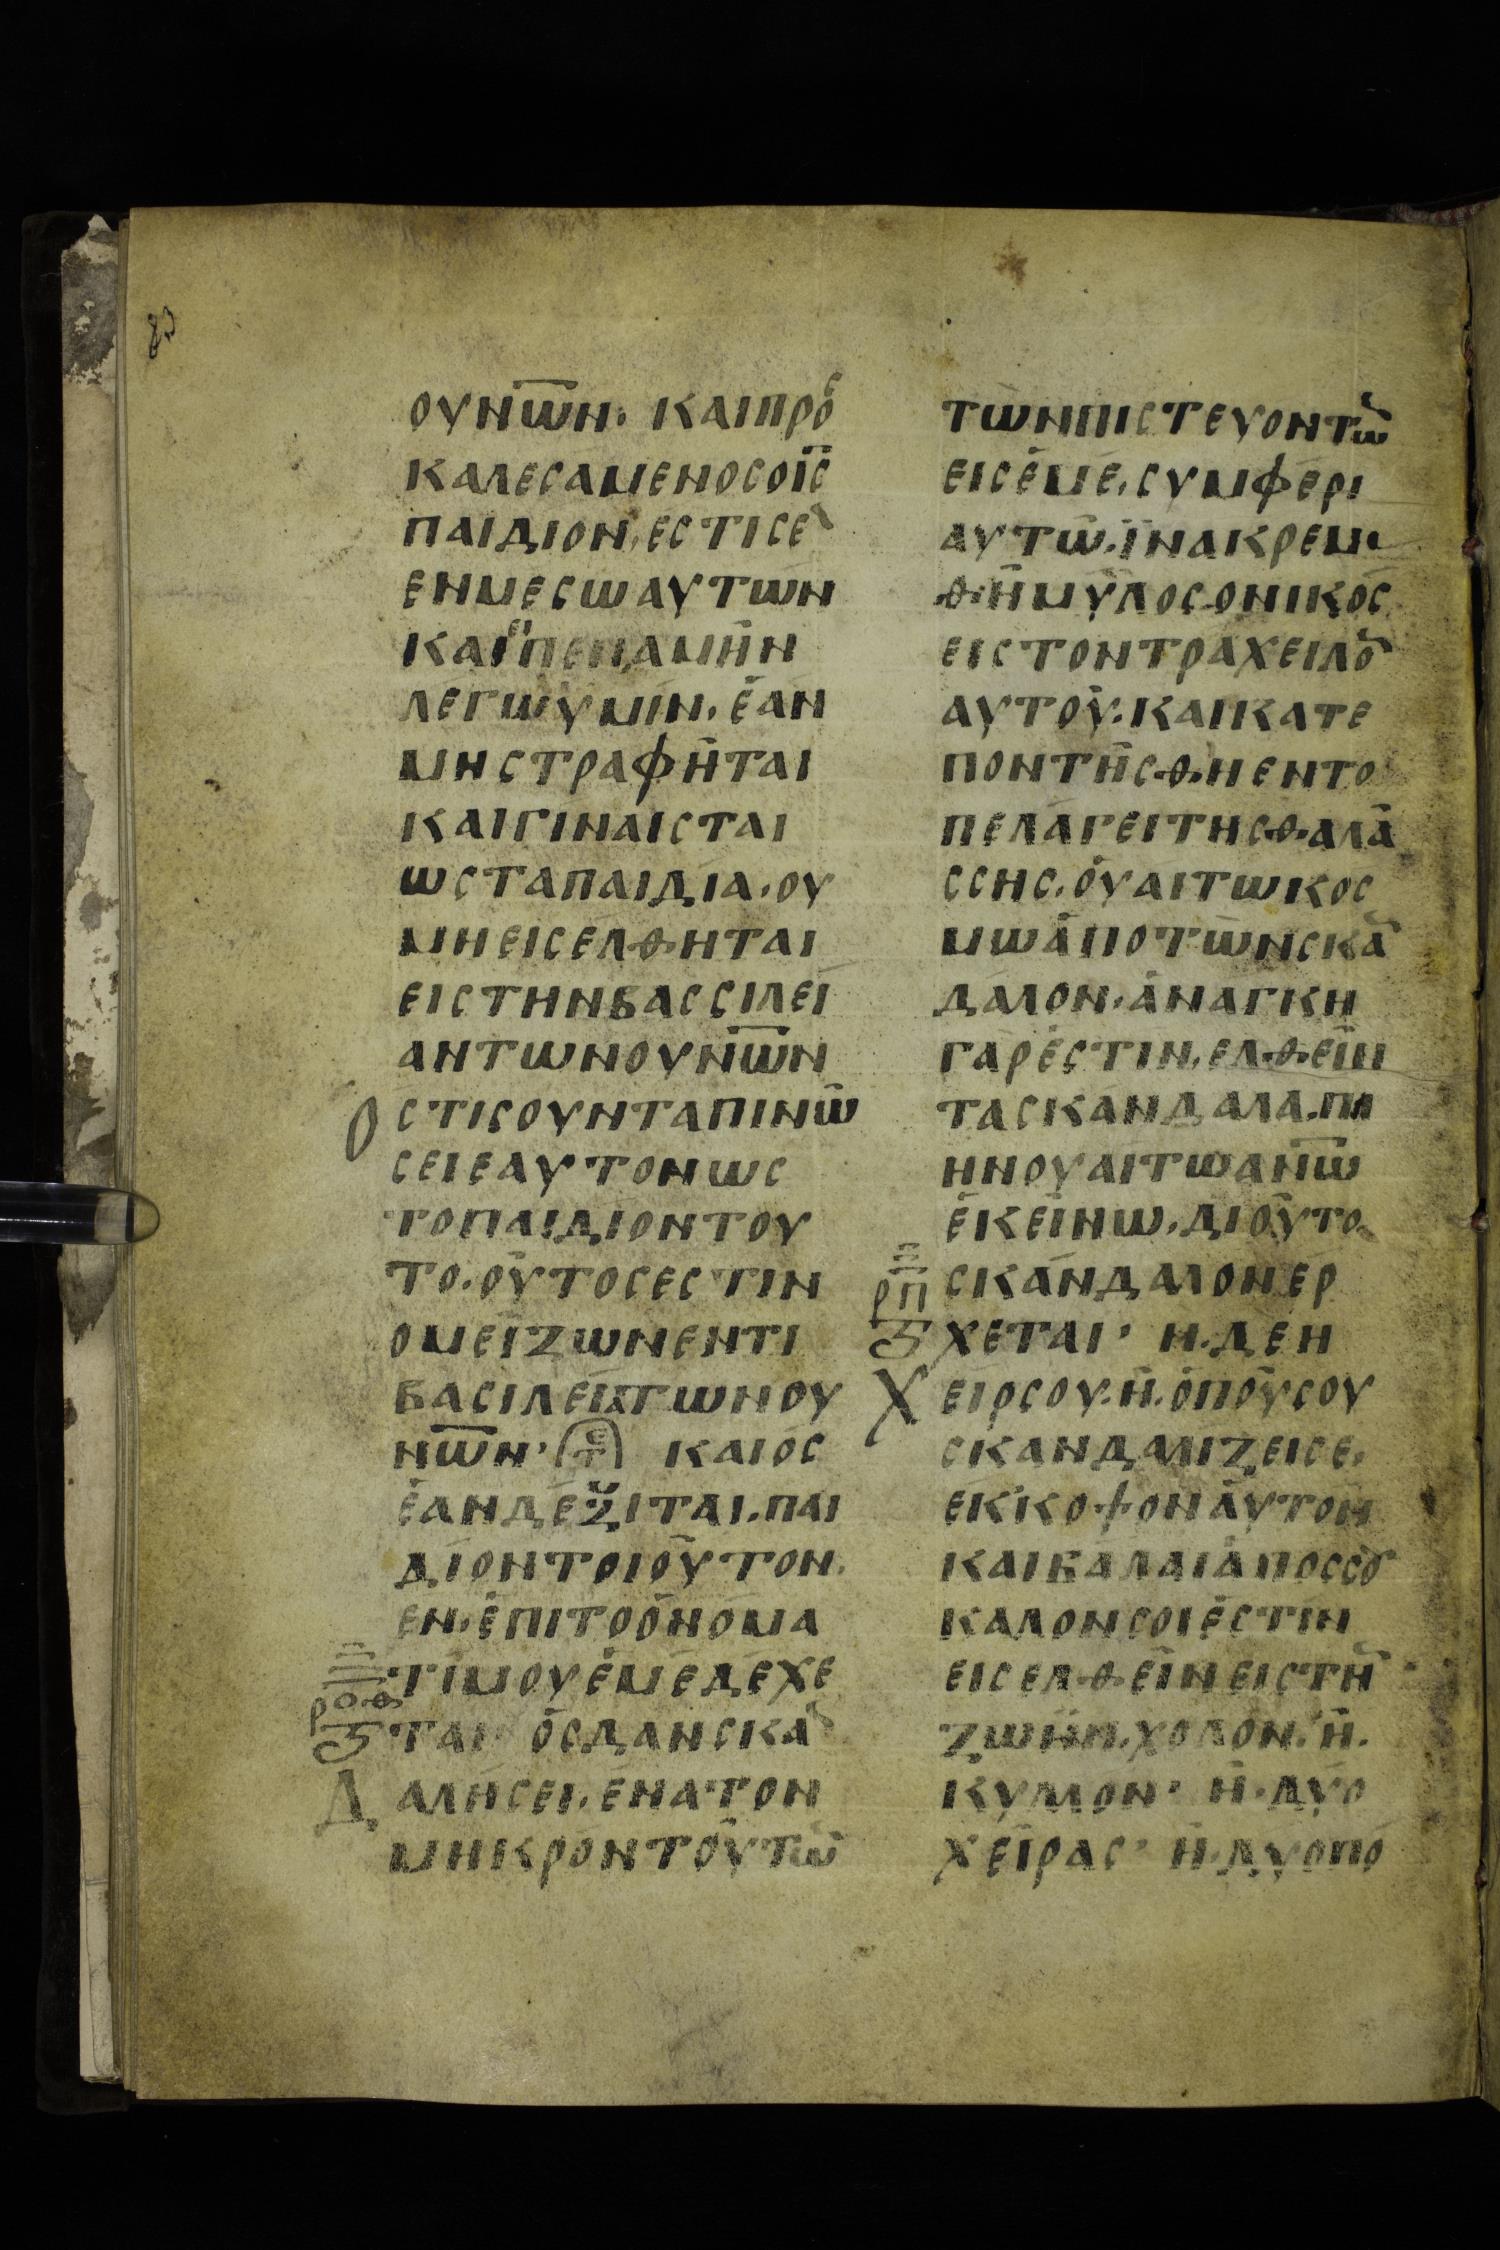 83
ΟΥΝΩ̅Ν· ΚΑΙΠΡΟϹ
ΚΑΛΕϹΑΜΕΝΟϹΟΙ̅Ϲ̅
ΠΑΙΔΙΟΝ·ΕϹΤΙϹΕ
ΕΝΜΕϹΩΑΥΤΩΝ
ΚΑΙΕΙΠΕΠΑΜΗΝ
ΛΕΓΩΥΜΙΝ·ΕΑΝ
ΜΗϹΤΡΑΦΗΤΑΙ
ΚΑΙΓΙΝΑΙϹΤΑΙ
ΩϹΤΑΠΑΙΔΙΑ·ΟΥ
ΜΗΕΙϹΕΛΘΗΤΑΙ
ΕΙϹΤΗΝΒΑϹϹΙΛΕΙ
ΑΝΤΩΝΟΥΝΩ̅Ν
ΟϹΤΙϹΟΥΝΤΑΠΙΝΩ
ϹΕΙΕΑΥΤΟΝΩϹ
ΤΟΠΑΙΔΙΟΝΤΟΥ
ΤΟ·ΟΥΤΟϹΕϹΤΙΝ
ΟΜΕΙΖΩΝΕΝΤΙ
ΒΑϹΙΛΕΙΑΤΩΝΟΥ
ΝΩ̅Ν· ΤΕ ΚΑΙΟϹ
ΕΑΝΔΕΞΙΤΑΙ·ΠΑΙ
ΔΙΟΝΤΟΙΟΥΤΟΝ·
ΕΝ·ΕΠΙΤΟΟΝΟΜΑ
ΤΙΜΟΥΕΜΕΔΕΧΕ
ΤΑΙ· ΟϹΔΑΝϹΚΑ
ΔΑΛΗϹΕΙ·ΕΝΑΤΟΝ
ΜΗΚΡΟΝΤΟΥΤΩ
ΤΩΝΠΙϹΤΕΥΟΝΤΩ̅
ΕΙϹΕΜΕ·ϹΥΜΦΕΡΙ
ΑΥΤΩ·ΙΝΑΚΡΕΜΑ
ΘΗΜΥΛΟϹΟΝΙΚΟϹ
ΕΙϹΤΟΝΤΡΑΧΕΙΛΟ̅
ΑΥΤΟΥ·ΚΑΙΚΑΤΕ
ΠΟΝΤΗϹΘΗΕΝΤΟ
ΠΕΛΑΓΕΙΤΗϹΘΑΛΑ
ϹϹΗϹ·ΟΥΑΙΤΩΚΟϹ
ΜΩΑΠΟΤΩΝϹΚΑ̅
ΔΑΛΟΝ·ΑΝΑΓΚΗ
ΓΑΡΕϹΤΙΝ·ΕΛΘΕΙΝ
ΤΑϹΚΑΝΔΑΛΑ·ΠΛ
ΗΝΟΥΑΙΤΩΑΝ̅Ω̅
ΕΚΕΙΝΩ·ΔΙΟΥΤΟ
ΡΠ ϹΚΑΝΔΑΛΟΝΕΡ
ΧΕΤΑΙ· Η·ΔΕΗ
ΧΕΙΡϹΟΥ·Η·ΟΠΟΥϹΟΥ
ϹΚΑΝΔΑΛΙΖΕΙϹΕ·
ΕΚΚΟΨΟΝΑΥΤΟΝ
ΚΑΙΒΑΛΑΙΑΠΟϹϹΟΥ
ΚΑΛΟΝϹΟΙΕϹΤΙΝ
ΕΙϹΕΛΘΕΙΝΕΙϹΤΗ̅
ΖΩΗΝ·ΧΟΛΟΝ·Η·
ΚΥΛΛΟΝ· Η·ΔΥΟ
ΧΕΙΡΑϹ· Η·ΔΥΟΠΟ